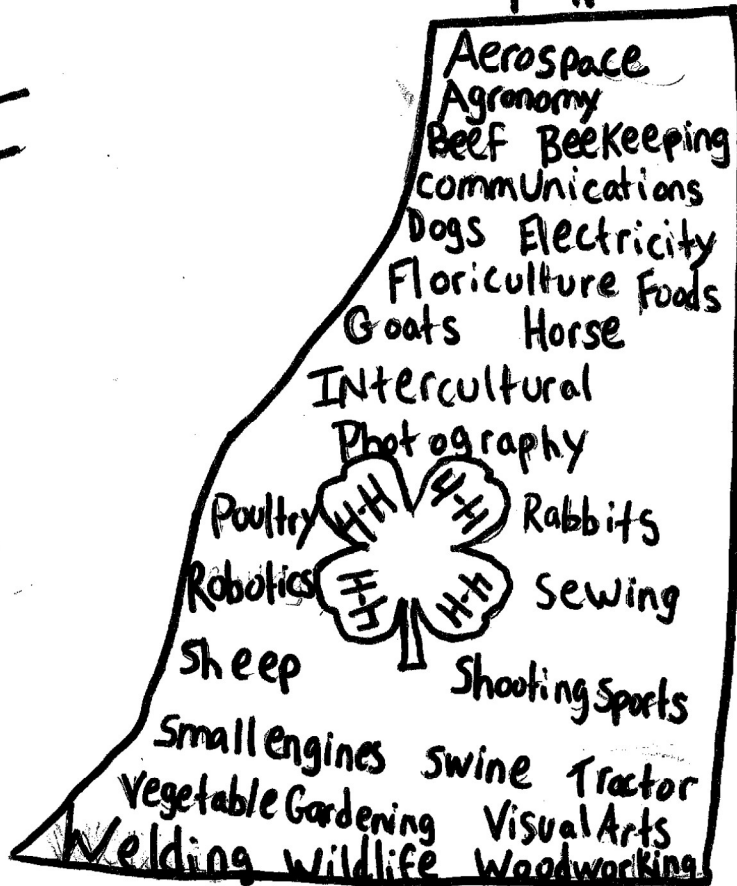 Aerospace
Agronomy
Beef BeeKeeping
communications
Dogs Electricity
Floriculture Foods
Goats Horse
INtercultural
Photography
Poultry H-H 4-H Rabbits
Robotics 4-H 4-H Sewing
Sheep Shooting Sports
Small engines Swine Tractor
Vegetable Gardening Visual Arts
Welding Wildlife Woodworking